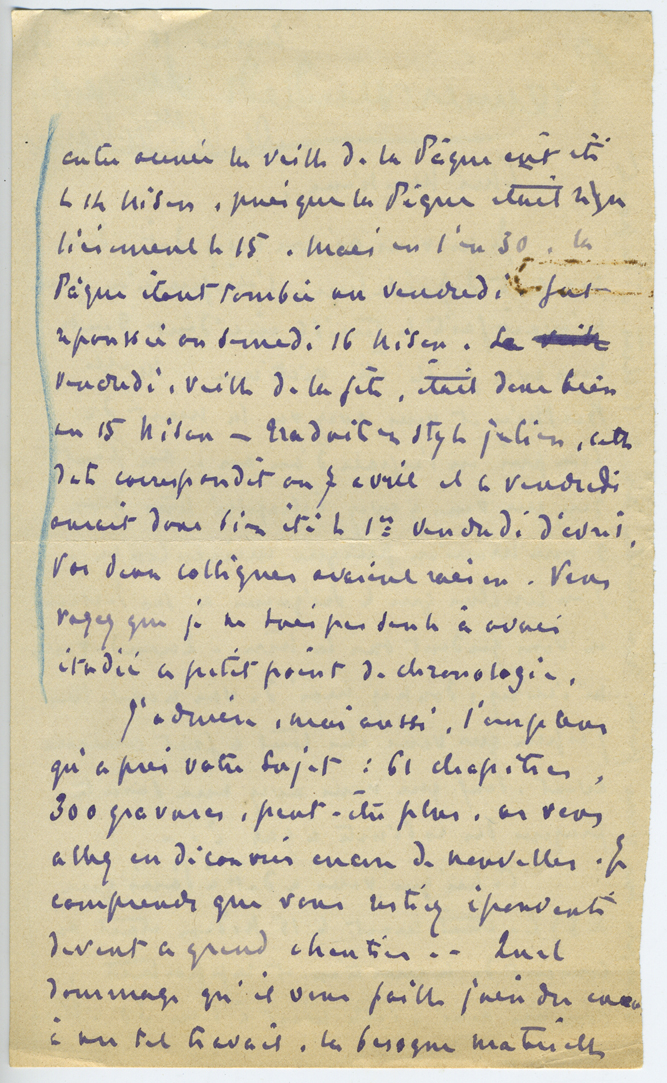 autre année la veille de la Pâque eût été
le 14 Nisan, puisque la Pâque était régu
lièrement le 15. Mais en l'an 30, la
Pâque étant tombée au vendredi fut
repoussée au samedi 16 Nisan. Le veille
vendredi, veille de la fête, était donc bien
un 15 Nisan — Traduit en style julien, cette
date correspondit au 7 avril et ce vendredi
aurait donc bien été le 1er vendredi d'avril,
Vos deux collègues avaient raison. Vous
voyez que je ne suis pas seule à avoir
étudié ce petit point de chronologie.
J'admire, moi aussi, l'ampleur
qu'a pris votre sujet : 61 chapitres,
300 gravures, peut-être plus, car vous
allez en découvrir encore de nouvelles. Je
comprends que vous restiez épouvanté
devant ce grand chantier .. Quel
dommage qu'il vous faille joindre
à un tel travail, la besogne matérielle